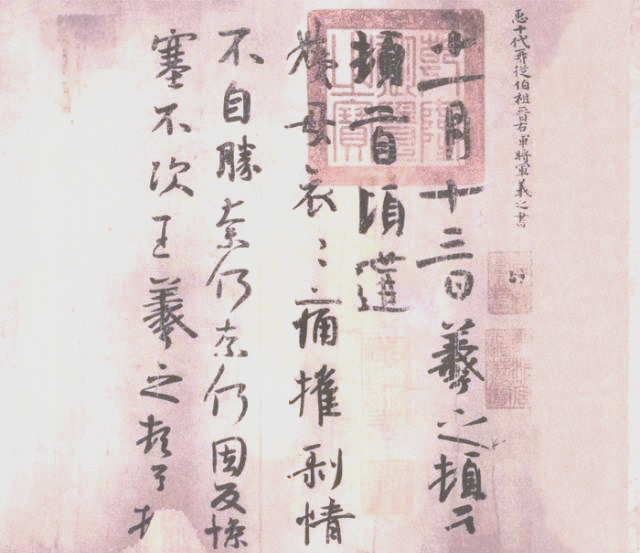 十代再從伯祖晉右軍將軍羲之書
十一月十三日羲之頓首
頓首頃遘
姨母哀〻痛摧剝情
不自勝奈何奈何因反慘
塞不次王羲之頓首
乾隆御覽之寶